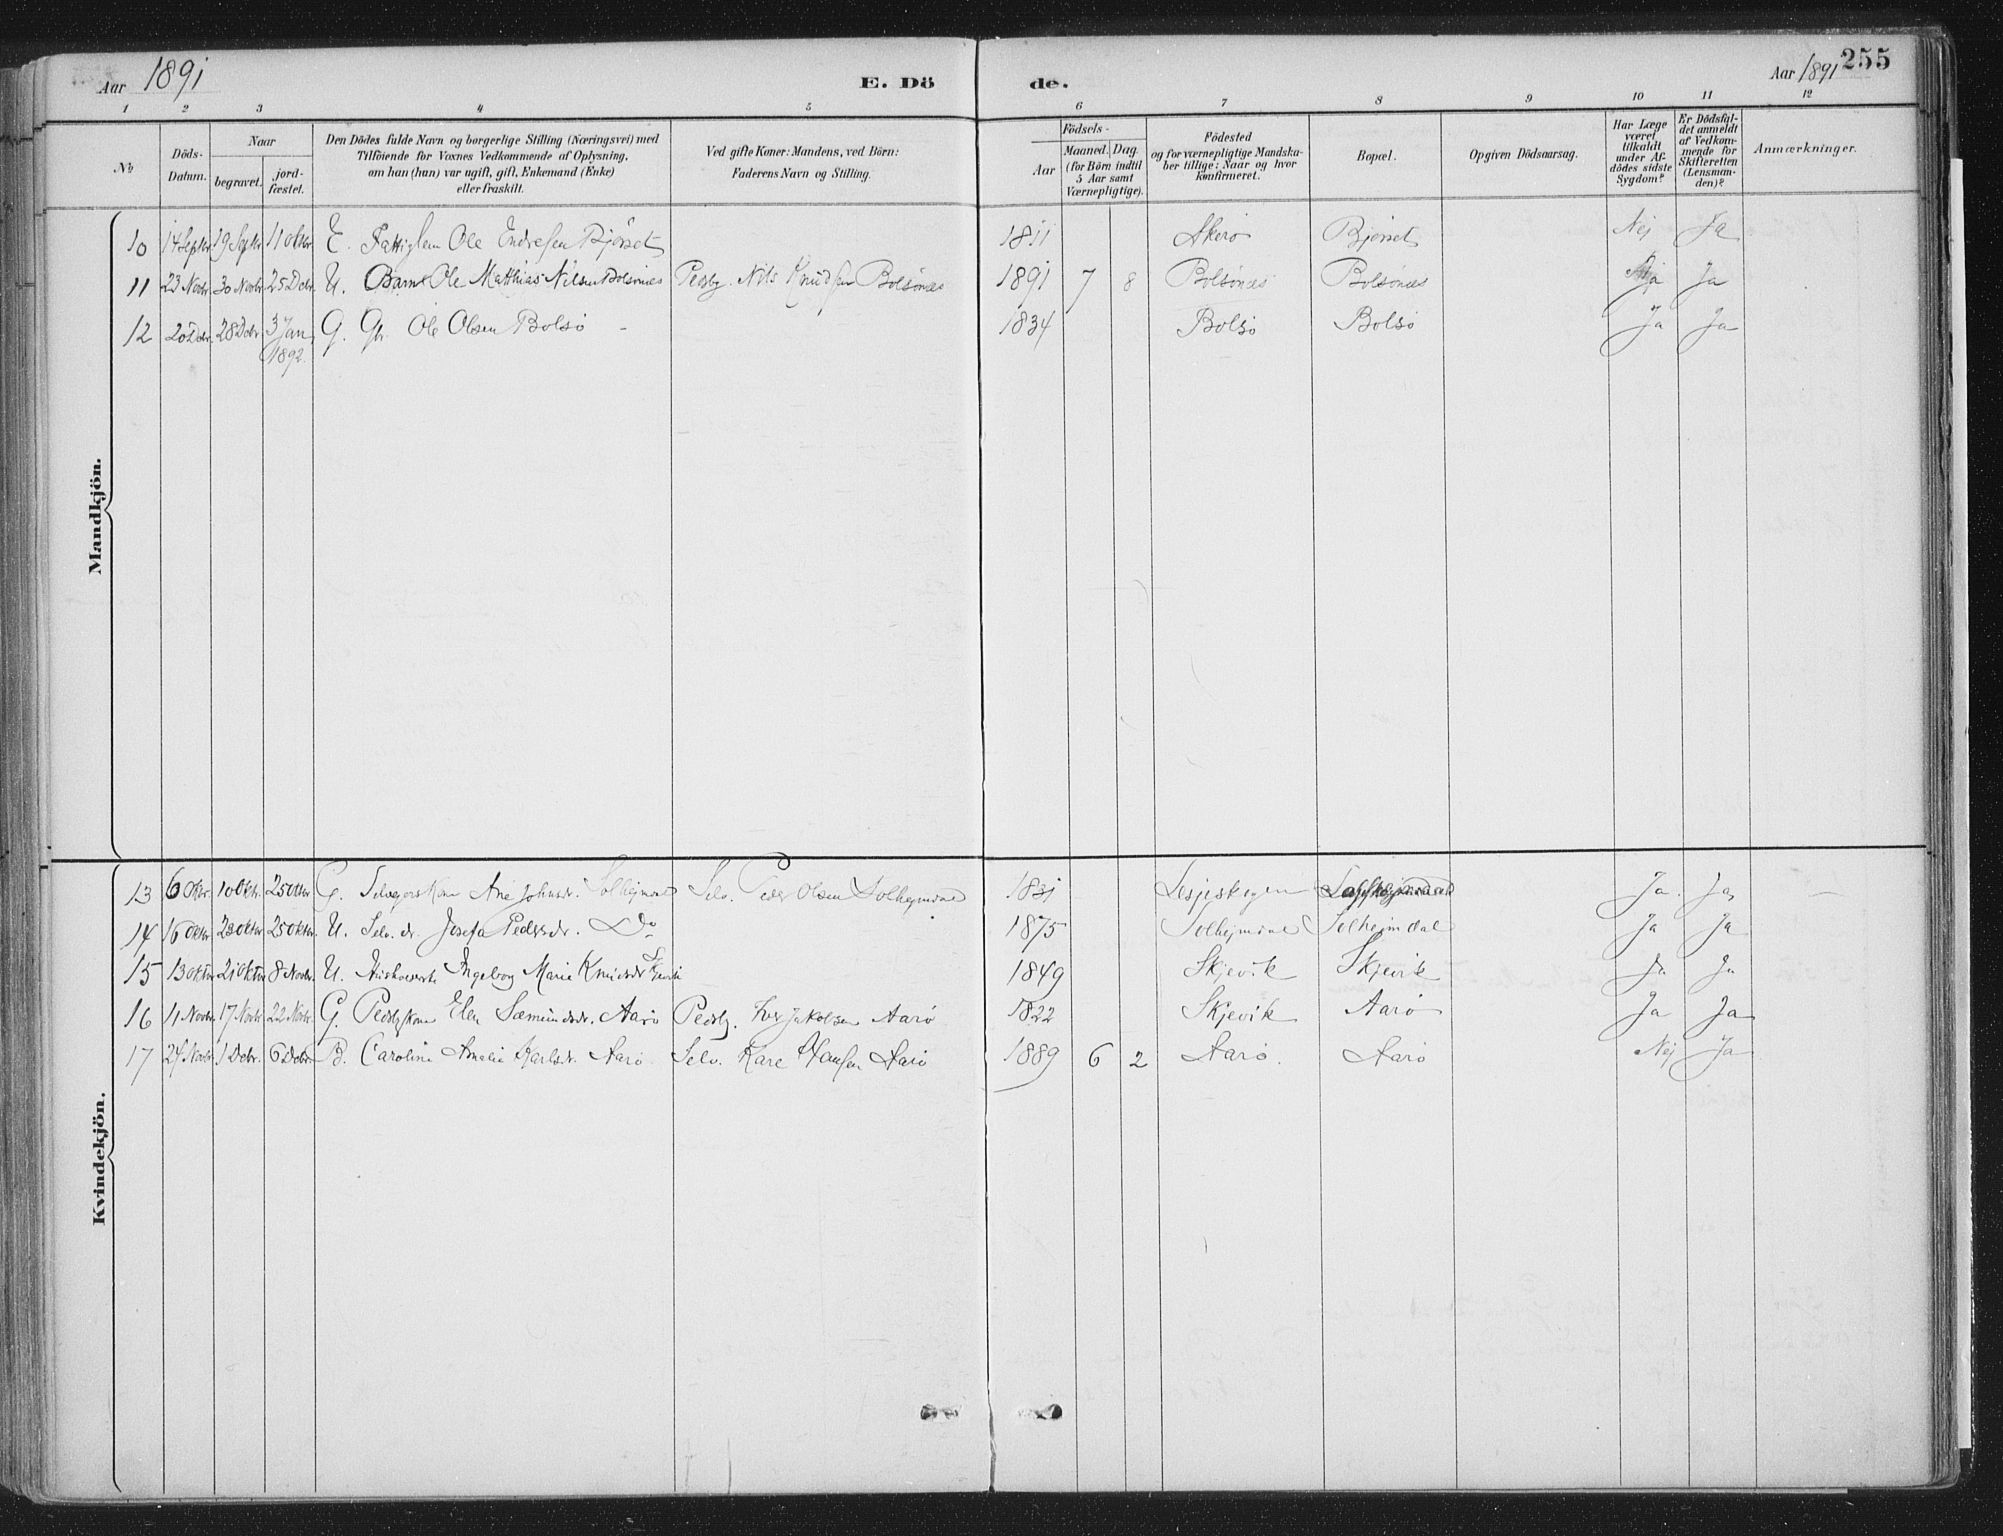 Aar 1891 E. Dö de. Aar 1891 255
1 2 3 4 5 6 7 8 9 10 11 12
No Döds-Datum. Naar begravet. jord-fæstet. Den Dödes fulde Navn og borgerlige Stilling (Næringsvei) med Tilföiende for Voxnes Vedkommende af Oplysning, om han (hun) var ugift, gift, Enkemand (Enke) eller fraskilt. Ved gifte Koner: Mandens, ved Börn: Faderens Navn og Stilling. Födsels- Aar Maaned. Dag. (for Börn indtil 5 Aar samt Værnepligtige). Födested og for værnepligtige Mandskaber tillige: Naar og hvor konfirmeret. Bopæl. Opgiven Dödsaarsag. Har Læge været tilkaldt under Afdödes sidste Sygdom? Er Dödsfaldet anmeldt af Vedkommende for Skifteretten (Lensmanden)? Anmærkninger.
Mandkjön.
10 14 Septbr 19 Septbr 11 Oktbr. E. Fattiglem Ole Endresen Bjørset 1811 Skerø Bjørset Nej Ja
11 23 Novbr. 30 Novbr 25 Dcbr. U. Barnet Ole Matthias Nilsen Bolsønæs Pladsbg. Nils Knudsen Bolsønæs 1891 7 8 Bolsønæs Bolsønæs Ja Ja
12 20 Dcbr. 28 Dcbr. 3 Jan 1892. G. Gbr. Ole Olsen Bolsø 1834 Bolsø Bolsø Ja Ja
Kvindekjön.
13 6 Oktbr. 10 Oktbr. 25 Oktbr G. Selvejerskone Ane Johnsdr. Solhejmdal Selv. Peder Olsen Solhejmdal 1831 Lesjeskogen Solhejmdal Ja. Ja
14 16 Oktbr 23 Oktbr 25 Oktbr. U. Selv. dr. Josefa Pedersdr. Do 1875 Solhejmdal Solhejmdal Ja Ja
15 13 Oktbr 21 Oktbr 8 Novbr. U. Ingeborg Marie Knudsdr. Skjevik 1849 Skjevik Skjevik Ja Ja
16 11 Novbr. 17 Novbr 22 Novbr. G. Pladsbgkone Elen Sæmundsdr. Aarø Pladsbg. Iver Jakobsen Aarø 1822 Skjevik Aarø Ja Ja
17 24 Novbr. 1 Dcbr. 6 Dcbr. B. Caroline Amalie Karlsdr. Aarø Selv. Kare Hansen Aarø 1889 6 2 Aarø. Aarø Nej Ja